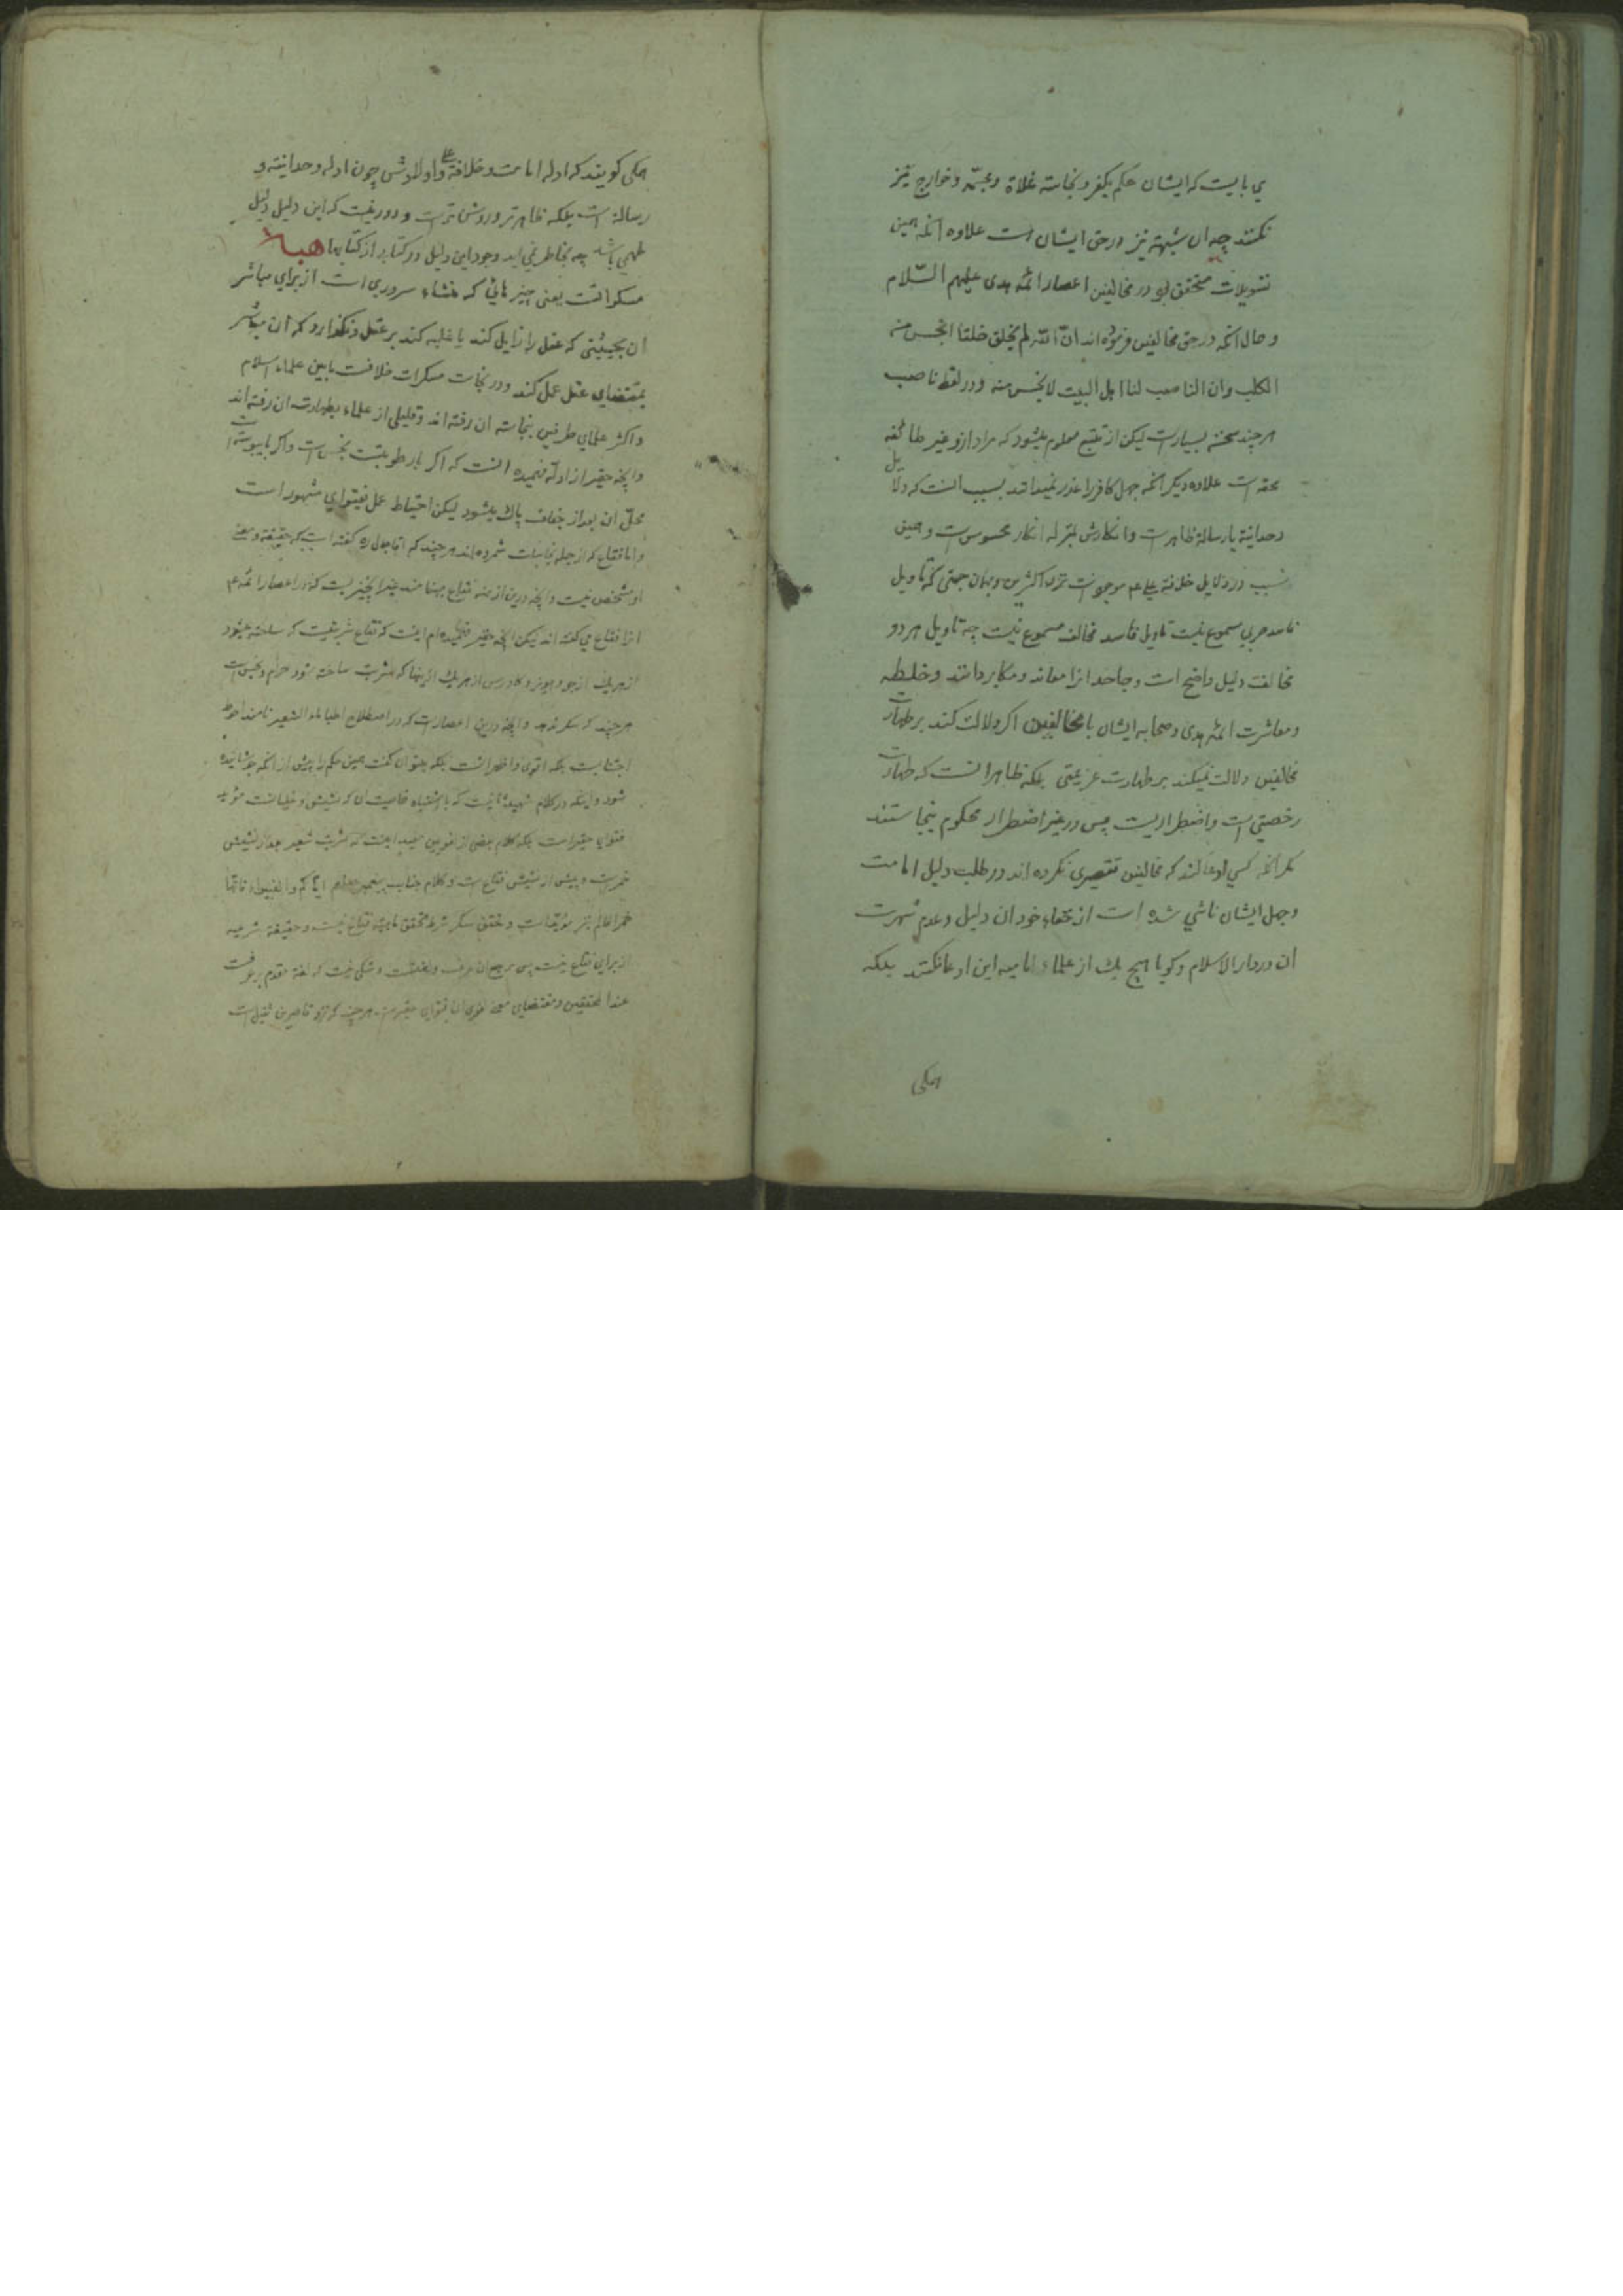 می بایست که ایشان حکم بکفر و نجاسة غلاة و مجسمه و خوارج نیز
نکنند چه ان شبهه نیز در حق ایشان است علاوه آنکه همین
تسویلات متحقق بود در مخالفین اعصار ائمه هدی علیهم السّلام
و حال انکه در حق مخالفین فرموده اند انّ اللّه لم یخلق خلقا انجس من
الکلب وان الناصب لنا اهل البیت لانجس منه و در لفظ ناصب
هر چند سخن بسیار است لیکن از تتبع معلوم میشود که مراد ازو غیر طائفه
محقه است علاوه دیگر آنکه جهل کافر را عذر نمیدانند بسبب انست که دلایل
وحدانیة یا رسالة ظاهر است و انکارش بمنزله انکار محسوس است و همین
سبب در دلایل خلافة علی ع موجود است نزد اکثرین و بهمان جهتی که تاویل
فاسد حربی مسموع نیست تاویل فاسد مخالف مسموع نیست چه تاویل هر دو
مخالف دلیل واضح است و جاحد انرا معاند و مکابر دانند و خلطه
و معاشرت ائمه هدی و صحابه ایشان با مخالفین اکر دلالت کند بر طهارت
مخالفین دلالت نمیکند بر طهارت عزیمتی بلکه ظاهر انست که طهارت
رخصتی است و اضطراریست پس در غیر اضطرار محکوم بنجاستند
مکر آنکه کسی ادعا کند که مخالفین تقصیری نکرده اند در طلب دلیل امامت
و جهل ایشان ناشی شده است از خفاء خود ان دلیل و عدم شهرت
ان در دار الاسلام و کویا هیچ یك از علماء امامیه این ادعا نکنند بلکه
همکی
همکی کویند که ادله امامت و خلافة علی و اولادش چون ادله وحدانیته و
رسالة است بلکه ظاهرتر و روشن تر است و دور نیست که این دلیل دلیل
ملهمی باشد چه بخاطر نمی اید وجود این دلیل در کتابی از کتابها
مسکراتست یعنی چیزهایی که منشاء سروری است از برای مباشر
ان بحیثیتی که عقل را زایل کند یا غلبه کند بر عقل و نکذارد که ان مباشر
بمقتضای عقل عمل کند و در نجاست مسکرات خلافست مابین علماء اسلام
و اکثر علمای طرفین بنجاسة ان رفته اند و قلیلی از علماء بطهارت ان رفته اند
و انچه حقیر از ادلّه فهمیده انست که اکر با رطوبتست نجس است و اکر با یبوست
محلّ ان بعد از جفاف پاك میشود لیکن احتیاط عمل بفتوای مشهور است
و اما فقاع که از جمله نجاسات شمرده اند هر چند که اقا جمال ره کفته است که حقیقة و معنی
او مشخص نیست و انچه درین ازمنه فقاع مینامند غیر انچیزیست که در اعصار ائمه ع
انرا فقاع می کفته اند لیکن انچه حقیر فهمیده ام اینست که فقاع شربتیست که ساخته میشود
از جو و مویز و کاورس از هر یك از اینها که شربت ساخته شود حرام و نجس است
هر چند که سکر ندهد و انچه درین اعصار است که در اصطلاح اطباء ماء الشعیر نامند احوط
اجتناب است بلکه اقوی و اظهر انست بلکه میتوان کفت همین حکم را پیش از آنکه جوشانیده
شود و اینکه در کلام شهید ثانیست که با اشتباه خاصیت ان که نشیش و غلیانست مؤید
فتوای حقیر است بلکه کلام بعضی از لغویین مفید اینست که شربت شعیر بعد از نشیش
خمر است و پیش از نشیش فقاع است و کلام جناب پیغمبر ایاکم والغبیراء فانها
خمر العالم نیز مؤید است و تحقق سکر شرط تحقق ماهیة فقاع نیست و حقیقة شرعیه
از برای فقاع نیست پس مرجع ان عرف و لغتست و شکی نیست که لغة مقدم بر عرفست
عند المحققین و مقتضای معنی لغوی انها فتوای حقیر است هر چند که نزد قاصرین ثقیل است